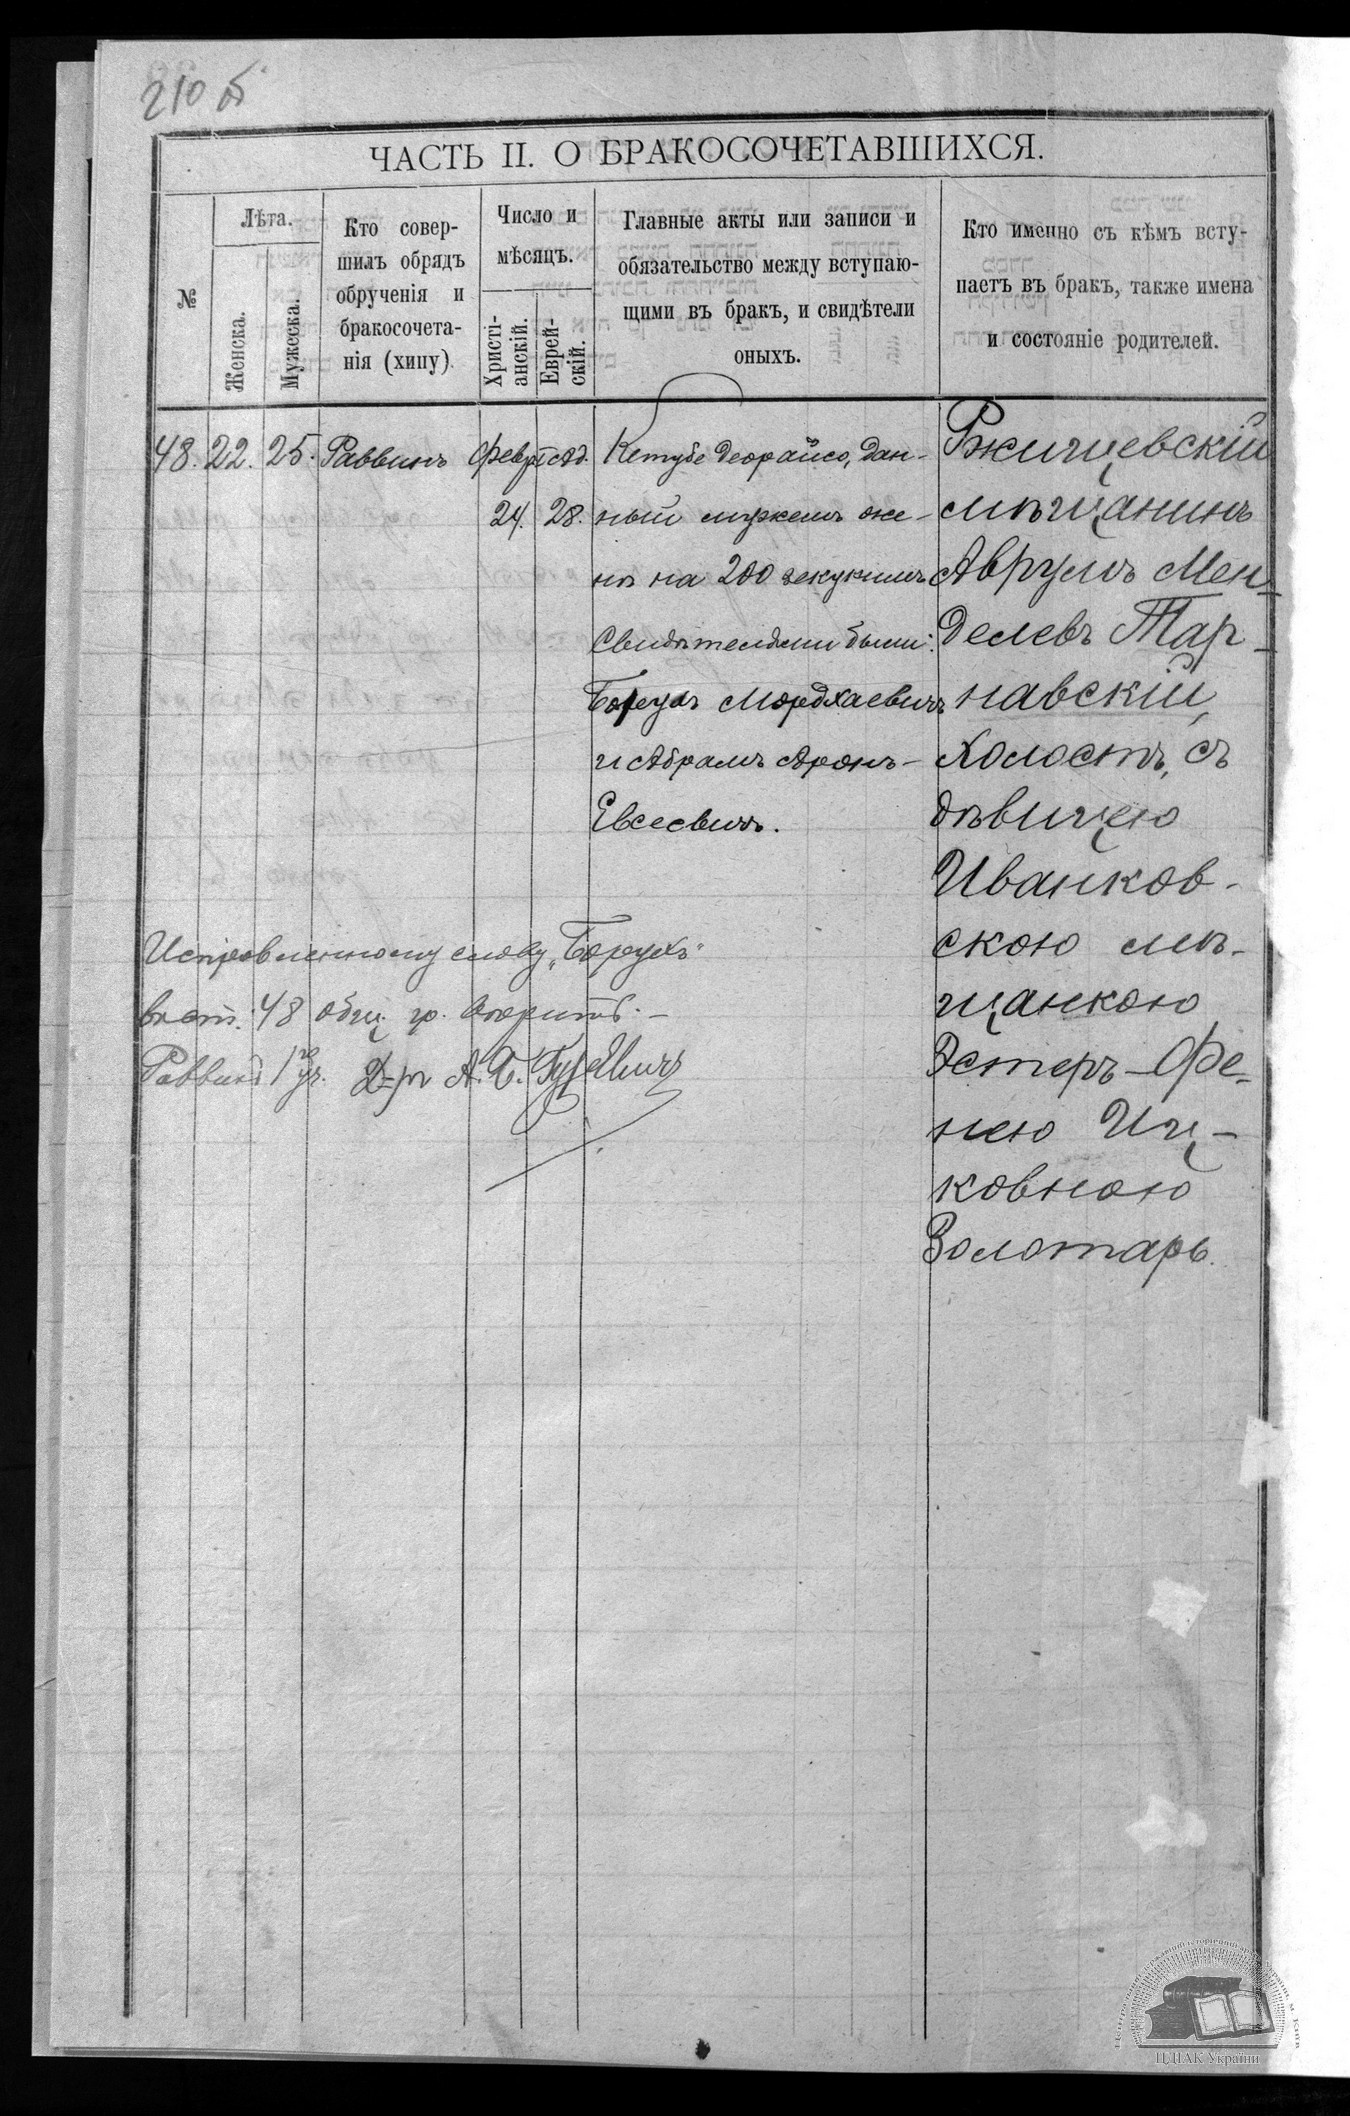 210 б
ЧАСТЬ II. О БРАКОСОЧЕТАВШИХСЯ.
№
Лѣта.
Женска.
Мужеска.
Кто совер-
шилъ обрядъ
обрученія и
бракосочета-
нія (хипу)
Число и
мѣсяцъ.
Христі-
анскій.
Еврей-
скій.
Главные акты или записи и
обязательство между вступаю-
щими въ бракъ, и свидѣтели
оныхъ.
Кто именно съ кѣмъ всту-
паетъ въ бракъ, также имена
и состояніе родителей.
48. 22. 25. Раввинъ
Февр.
24.
Ад.
28.
Кетубе деорайсо, дан-
ный мужемъ же-
нѣ на 200 зекукимъ
Свидѣтелями были:
Борухъ Мордхаевичъ
и Абрамъ Аронъ-
Евсеевичъ.
Ржищевскій
мѣщанинъ
Аврумъ Мен-
делевъ Тар-
навскій,
холостъ, съ
дѣвицею
Иванков-
скою мѣ-
щанкою
Эстеръ-Фе-
нею Иц-
ковною
Золотарь.
Исправленному слову „Борухъ"
въ ст. 48 общ. гр. вѣрить. -
Раввинъ 1го уч. Д-ръ А. Б. Гуревичъ
ЦДІАК України